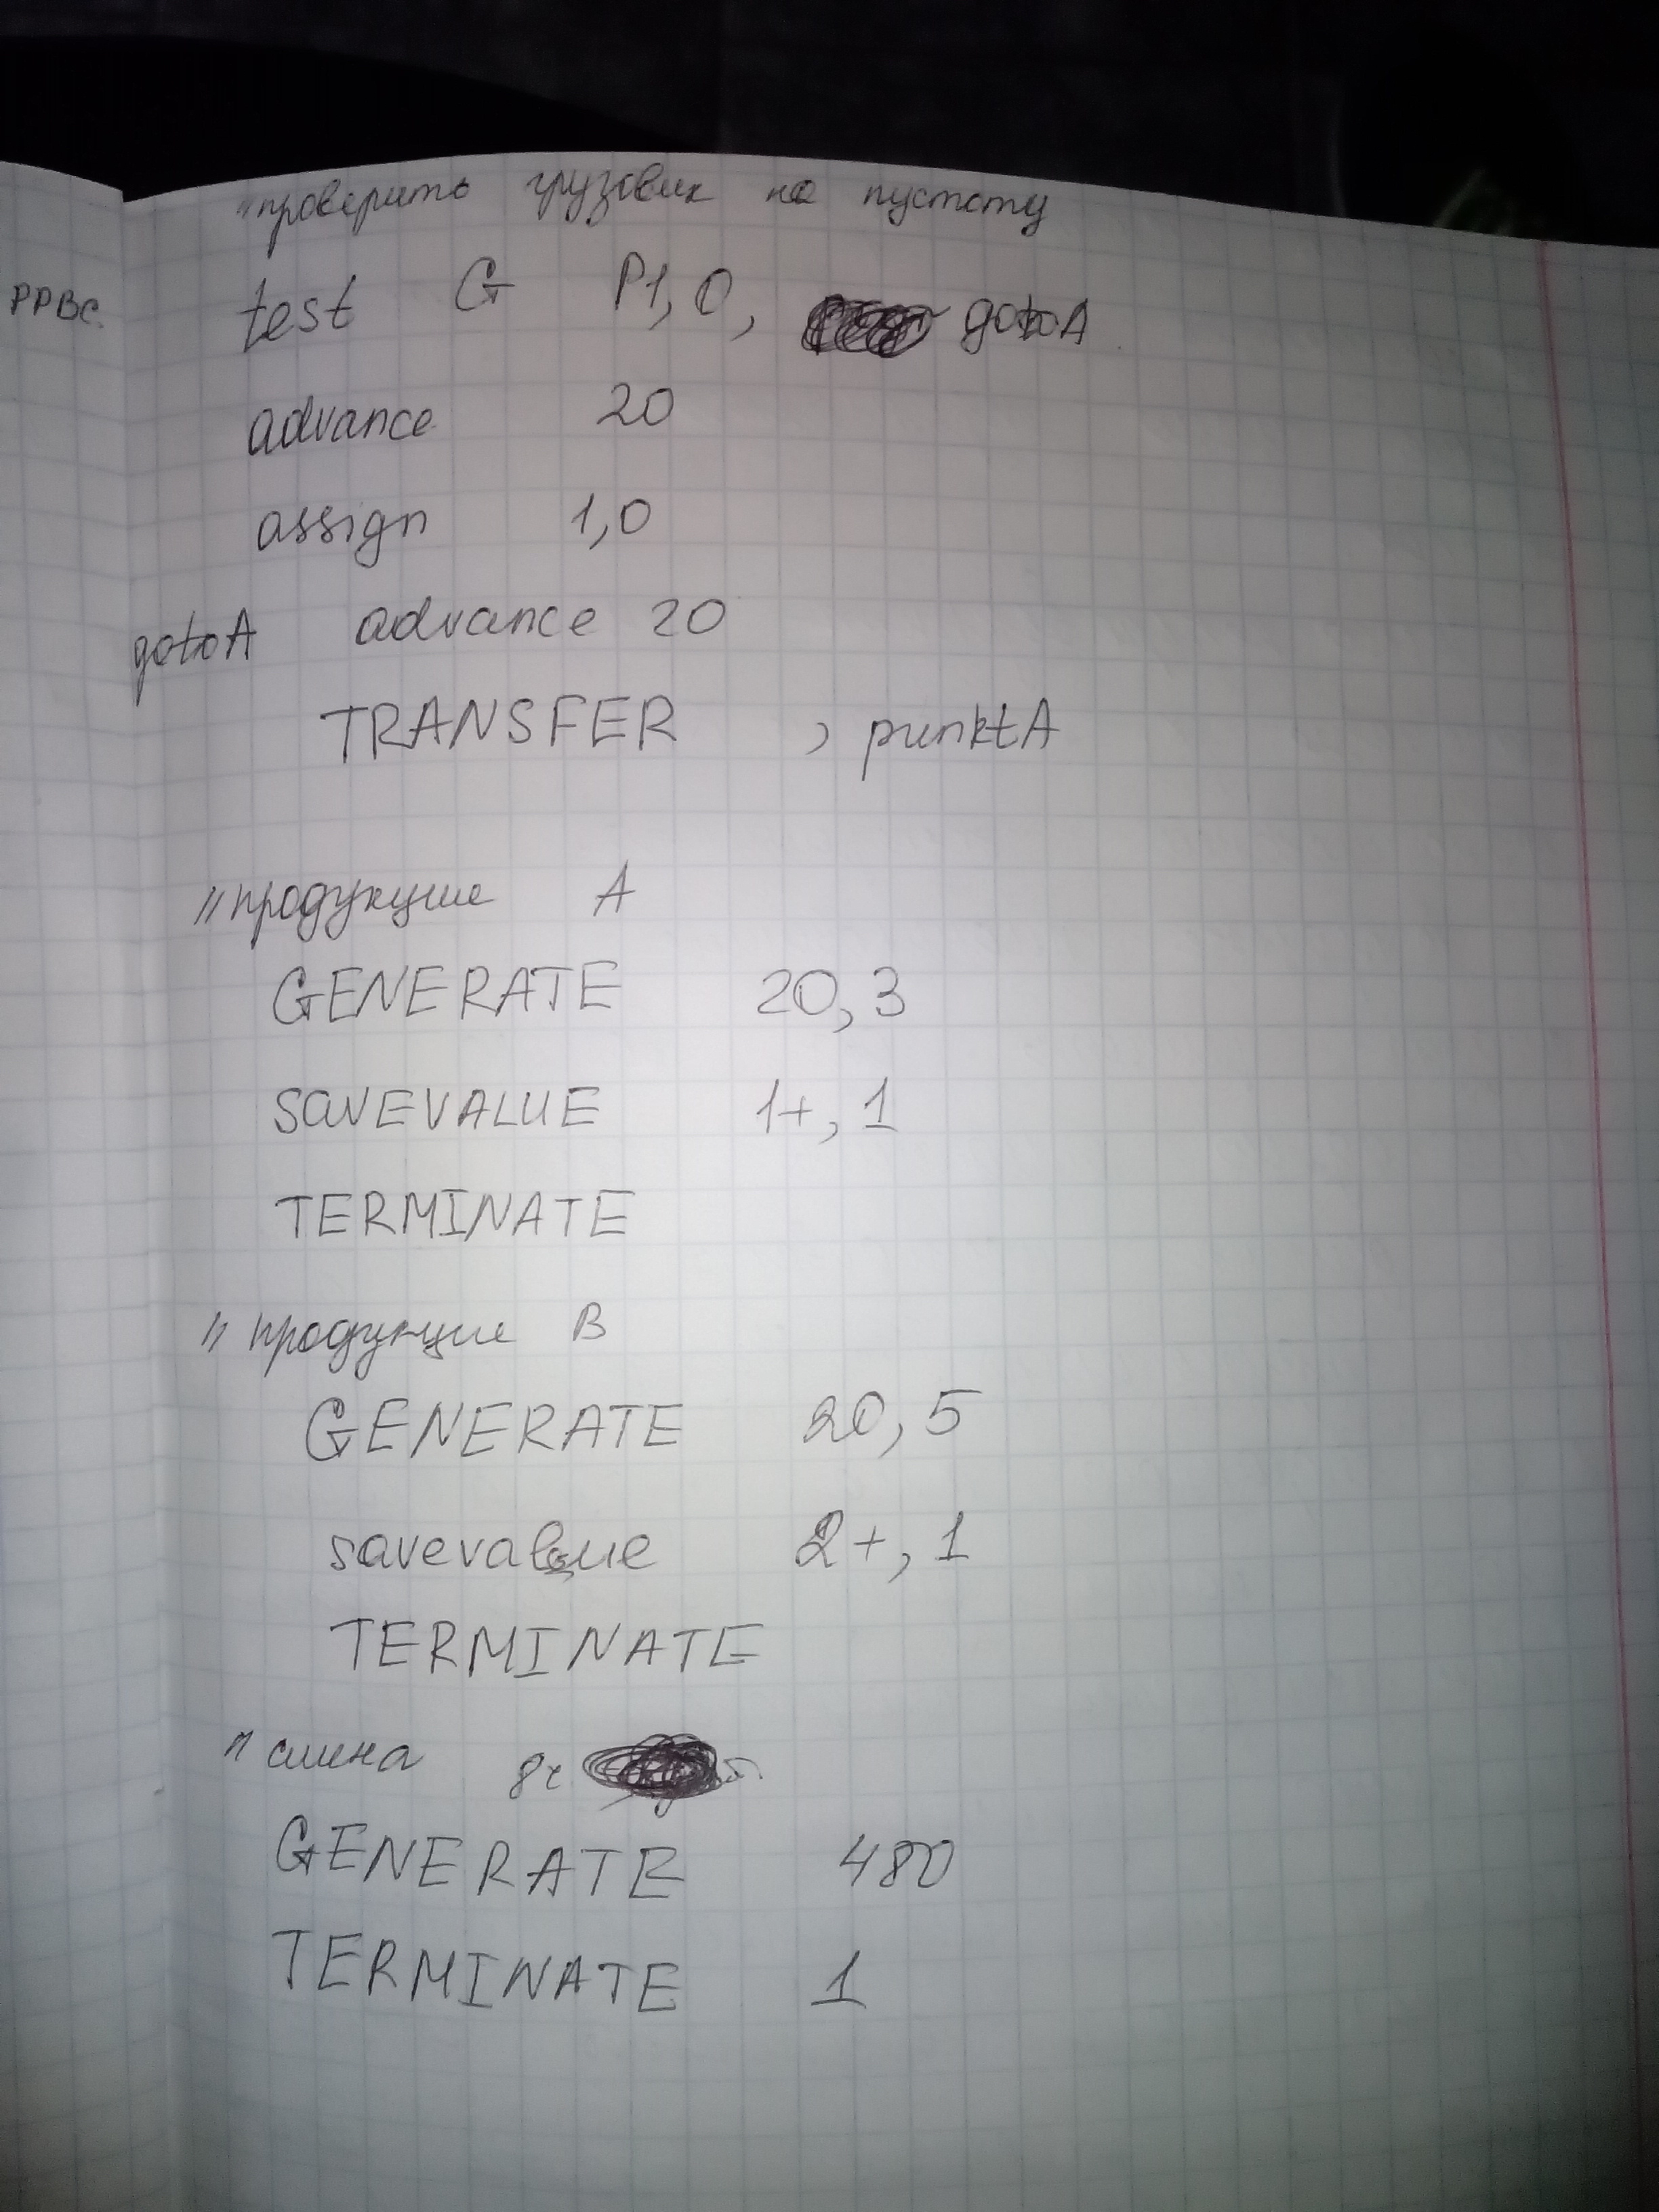 "проверить грузовик на пустоту
PPBC test G P1, 0, gotoA
advance 20
assign 1,0
gotoA advance 20
TRANSFER , punktA
"продукция A
GENERATE 20, 3
SAVEVALUE 1+, 1
TERMINATE
"продукция B
GENERATE 20, 5
savevalue 2+, 1
TERMINATE
"смена 8ч
GENERATE 480
TERMINATE 1